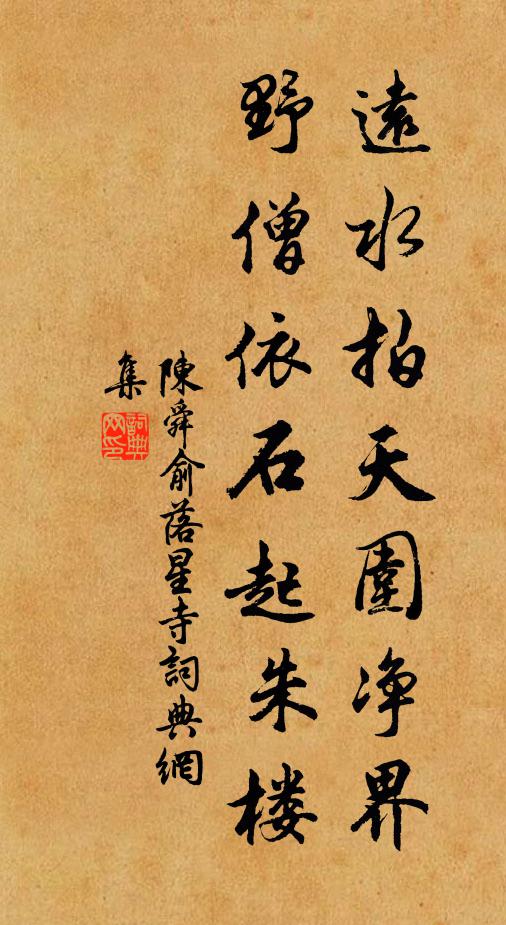 遠水拍天圍净界
野僧依石起朱楼
陳舜俞落星寺詞典網
集
詞典网印